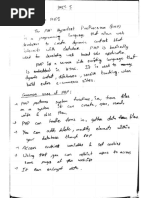 PHP
The PHP Hypertext Preprocessor (PHP)
is a programming language that allows web
developers to create dynamic content that
interacts with database. PHP is basically
used to develop web based s/w application
PHP is a server side scripting language that
is embedded in HTML. It is used to manage
dynamic content, databases, session tracking, when
build entire e-commerce sites.
Common uses of PHP:
PHP performs system functions, i.e. from files
on a system it can create, open, read,
write & close them.
PHP can handle forms i.e. gather data from files
You can add, delete, modify elements within
your database through PHP.
Access cookies variables & set cookies
Using PHP you can restrict users to access
some pages of the website
It can encrypt data